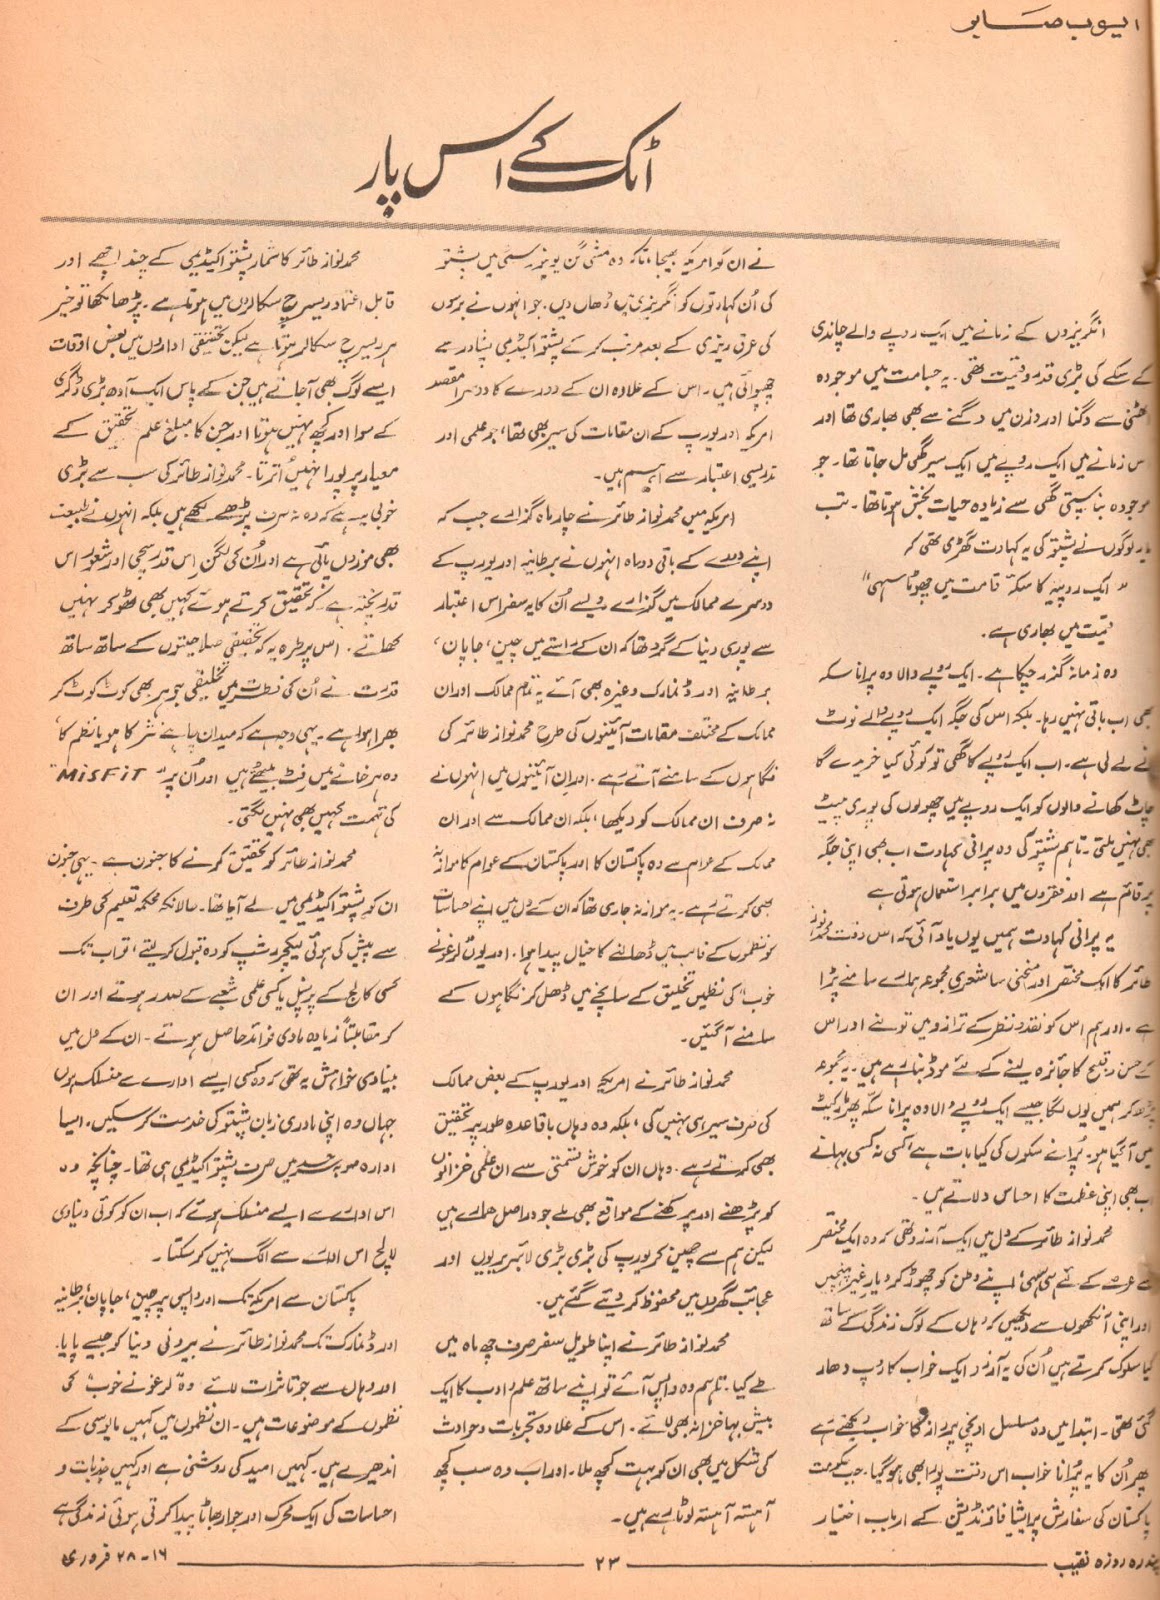 ایوب صابر
اٹک کے اس پار
انگریزوں کے زمانے میں ایک روپے والے چاندی
کے سکے کی بڑی قدر و قیمت تھی۔ یہ جسامت میں موجودہ
اٹھنی سے دگنا اور وزن میں دگنے سے بھی بھاری تھا اور
اس زمانے میں ایک روپے میں ایک سیر گھی مل جاتا تھا۔ جو
موجودہ بناسپتی گھی سے زیادہ حیات بخش ہوتا تھا۔ تب
یار لوگوں نے پشتو کی یہ کہاوت گھڑی تھی کہ
"ایک روپیہ کا سکہ قامت میں چھوٹا سہی"
قیمت میں بھاری ہے۔
وہ زمانہ گذر چکا ہے۔ ایک روپے والا وہ پرانا سکہ
بھی اب باقی نہیں رہا۔ بلکہ اس کی جگہ ایک روپے والے نوٹ
نے لے لی ہے۔ اب ایک روپے کا گھی تو کوئی کیا خریدے گا
چاٹ کھانے والوں کو ایک روپے میں چھولوں کی پوری پلیٹ
بھی نہیں ملتی۔ تاہم پشتو کی وہ پرانی کہاوت اب بھی اپنی جگہ
پر قائم ہے اور فقروں میں برابر استعمال ہوتی ہے
یہ پرانی کہاوت ہمیں یوں یاد آئی کہ اس وقت محمد نواز
طائر کا ایک مختصر اور منحنی سا شعری مجموعہ ہمارے سامنے پڑا
ہے۔ اور ہم اس کو نقد و نظر کے ترازو میں تولنے اور اس
کے حسن و قبیح کا جائزہ لینے کے لئے موڈ بنا رہے ہیں۔ یہ مجموعہ
پڑھ کر ہمیں یوں لگا جیسے ایک روپے والا وہ پرانا سکہ پھر مارکیٹ
میں آگیا ہو۔ پُرانے سکوں کی کیا بات ہے، کسی نہ کسی بہانے
اب بھی اپنی عظمت کا احساس دلاتے ہیں۔
محمد نواز طائر کے دل میں ایک آرزو تھی کہ وہ ایک مختصر
سے عرصے کے لئے ہی سہی، اپنے وطن کو چھوڑ کر دیارِ غیر پہنچیں
اور اپنی آنکھوں سے دیکھیں کہ وہاں کے لوگ زندگی کے ساتھ
کیا سلوک کرتے ہیں اُن کی یہ آرزو ایک خواب کا رُوپ دھار
گئی تھی۔ ابتدا میں وہ مسلسل اونچی پرواز کا خواب دیکھتے رہے
پھر اُن کا یہ پُرانا خواب اس وقت پورا بھی ہو گیا۔ جب حکومت
پاکستان کی سفارش پر ایشیا فاؤنڈیشن کے ارباب اختیار
نے ان کو امریکہ بھیجا، تاکہ وہ مشی گن یونیورسٹی میں پشتو
کی اُن کہاوتوں کو انگریزی میں ڈھال دیں۔ جو انہوں نے برسوں
کی عرق ریزی کے بعد مرتب کر کے پشتو اکیڈمی پشاور سے
چھپوائی ہیں۔ اس کے علاوہ ان کے دورے کا دوسرا مقصد
امریکہ اور یورپ کے ان مقامات کی سیر بھی تھا، جو علمی اور
تدریسی اعتبار سے اہم ہیں۔
امریکہ میں محمد نواز طائر نے چار ماہ گزارے جب کہ
اپنے دورے کے باقی دو ماہ انہوں نے برطانیہ اور یورپ کے
دوسرے ممالک میں گزارے ویسے اُن کا یہ سفر اس اعتبار
سے پوری دنیا کے گرد تھا کہ ان کے راستے میں چین، جاپان،
برطانیہ اور ڈنمارک وغیرہ بھی آئے یہ تمام ممالک اور ان
ممالک کے مختلف مقامات آئینوں کی طرح محمد نواز طائر کی
نگاہوں کے سامنے آتے رہے۔ اور اِن آئینوں میں انہوں نے
نہ صرف ان ممالک کو دیکھا، بلکہ ان ممالک سے اور ان
ممالک کے عوام سے وہ پاکستان کا اور پاکستان کے عوام کا موازنہ
بھی کرتے رہے۔ یہ موازنہ جاری تھا کہ ان کے دل میں اپنے احساسات
کو نظموں کے قالب میں ڈھالنے کا خیال پیدا ہوا۔ اور یوں لرغونے
خوب" کی نظمیں تخلیق کے سانچے میں ڈھل کر نگاہوں کے
سامنے آگئیں۔
محمد نواز طائر نے امریکہ اور یورپ کے بعض ممالک
کی صرف سیر ہی نہیں کی، بلکہ وہ وہاں باقاعدہ طور پر تحقیق
بھی کرتے رہے۔ وہاں ان کو خوش قسمتی سے ان علمی خزانوں
کو پڑھنے اور پرکھنے کے مواقع بھی ملے جو دراصل ہمارے ہیں
لیکن ہم سے چھین کر یورپ کی بڑی بڑی لائبریریوں اور
عجائب گھروں میں محفوظ کر دیئے گئے ہیں۔
محمد نواز طائر نے اپنا طویل سفر صرف چھ ماہ میں
طے کیا۔ تاہم وہ واپس آئے تو اپنے ساتھ علم و ادب کا ایک
بیش بہا خزانہ بھی لائے۔ اس کے علاوہ تجربات و حوادث
کی شکل میں بھی ان کو بہت کچھ ملا۔ اور اب وہ سب کچھ
آہستہ آہستہ لوٹا رہے ہیں۔
محمد نواز طائر کا شمار پشتو اکیڈیمی کے چند اچھے اور
قابل اعتماد ریسرچ سکالروں میں ہوتا ہے۔ پڑھا لکھا تو خیر
ہر ریسرچ سکالر ہوتا ہے لیکن تحقیقی اداروں میں بعض اوقات
ایسے لوگ بھی آ جاتے ہیں جن کے پاس ایک آدھ بڑی ڈگری
کے سوا اور کچھ نہیں ہوتا اور جن کا مبلغ علم تحقیق کے
معیار پر پورا نہیں اُترتا۔ محمد نواز طائر کی سب سے بڑی
خوبی یہ ہے کہ وہ نہ صرف پڑھے لکھے ہیں بلکہ انہوں نے طبیعت
بھی موزوں پائی ہے اور اُن کی لگن اِس قدر سچی اور شعور اس
قدر پختہ ہے کہ تحقیق کرتے ہوئے کہیں بھی ٹھوکر نہیں
کھاتے۔ اس پر طرہ یہ کہ تحقیقی صلاحیتوں کے ساتھ ساتھ
قدرت نے اُن کی فطرت میں تخلیقی جوہر بھی کوٹ کوٹ کر
بھرا ہوا ہے۔ یہی وجہ ہے کہ میدان چاہے نثر کا ہو یا نظم کا،
وہ ہر خانے میں فِٹ بیٹھتے ہیں اور اُن پر "MisFiT"
کی تہمت کہیں بھی نہیں لگتی۔
محمد نواز طائر کو تحقیق کرنے کا جنون ہے۔ یہی جنون
ان کو پشتو اکیڈیمی میں لے آیا تھا۔ حالانکہ محکمہ تعلیم کی طرف
سے پیش کی ہوئی لیکچرر شپ کو وہ قبول کر لیتے، تو اب تک
کسی کالج کے پرنسپل یا کسی علمی شعبے کے صدر ہوتے اور ان
کو مقابلتاً زیادہ مادی فوائد حاصل ہوتے۔ ان کے دل میں
بنیادی خواہش یہ تھی کہ وہ کسی ایسے ادارے سے منسلک ہوں
جہاں وہ اپنی مادری زبان پشتو کی خدمت کر سکیں۔ ایسا
ادارہ صوبہ سرحد میں صرف پشتو اکیڈیمی ہی تھا۔ چنانچہ وہ
اس ادارے سے ایسے منسلک ہوئے کہ اب ان کو کوئی دنیاوی
لالچ اس ادارے سے الگ نہیں کر سکتا۔
پاکستان سے امریکہ تک اور واپسی پر چین، جاپان، برطانیہ
اور ڈنمارک تک محمد نواز طائر نے بیرونی دنیا کو جیسے پایا۔
اور وہاں سے جو تاثرات لئے وہ "لرغونے خوب" کی
نظموں کے موضوعات ہیں۔ ان نظموں میں کہیں مایوسی کے
اندھیرے ہیں۔ کہیں امید کی روشنی ہے اور کہیں جذبات و
احساسات کی ایک محرک اور جوار بھاٹا پیدا کرتی ہوئی زندگی ہے
پندرہ روزہ نقیب
۲۳
۱۶-۲۸ فروری